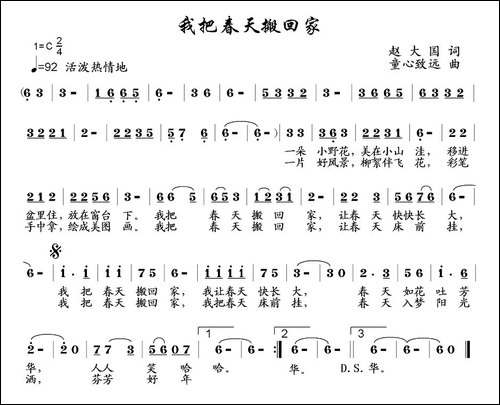 我把春天搬回家
1=C 2/4
♩=92 活泼热情地
赵大国 词
童心致远 曲
(6 3 | 3 - | 1665 | 6 3 | 3 - | 2235 | 3 2 3 | 0323 |
3221 | 2 - | 2235 | 57 6 | 6 - | 6 - ) | 33 363 | 2235 | 6 - | 22
一朵 小野花, 美在小山 洼, 移进
一片 好风景, 柳絮伴飞 花, 彩笔
212 | 2235 | 3 - | 36 | 653 | 5653 | 23 | 3 - | 221 | 2235 | 5676 | 6 -
盆里住, 放在窗台 下。 我把 春天 搬回 家, 让春天 快快长 大,
手中拿, 绘成美图 画。 我把 春天 搬回 家, 让春天 床前 挂,
6 - | i · i | i i i | 75 | 6 - | 6ii i | 6675 | 3 - | 30 | 2 · 3 | 565 | 12
我 把 春天 搬回 家, 我让春天 快快长 大, 春 天 如花 吐芳
我 把 春天 搬回 家, 我把春天 床前 挂, 春 天 入梦 阳光
2 - | 20 | 77 3 | 5607 | 6 - | 6 - :‖ 6 - | 6 - | 6 - | 6 - ‖
1 2 3
华, 人人 笑哈 哈。 华。 D.S. 华。
洒, 芬芳 好年